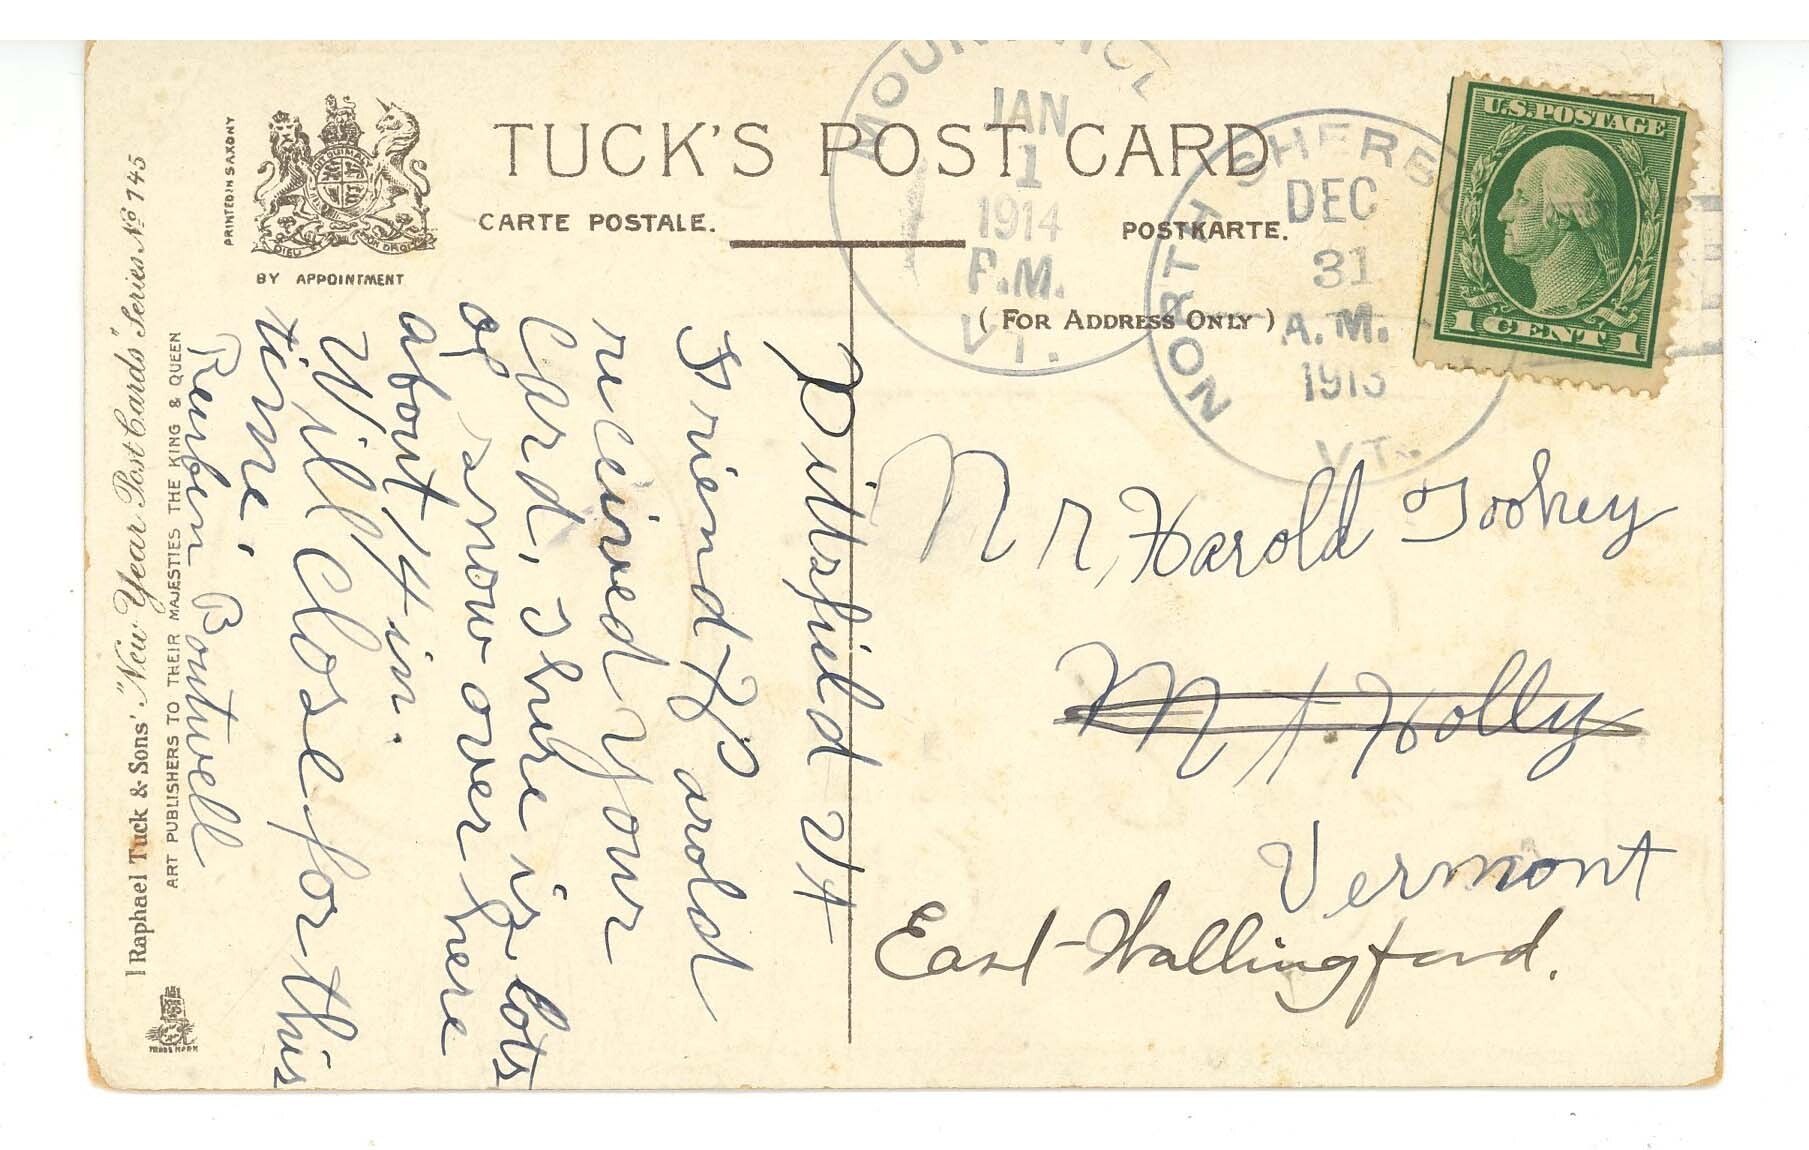 TUCK'S POST CARD
CARTE POSTALE.
POSTKARTE.
(FOR ADDRESS ONLY)
PRINTED IN SAXONY
BY APPOINTMENT
DIEU ET MON DROIT
Raphael Tuck & Sons' "New Year Post Cards" Series No 745
ART PUBLISHERS TO THEIR MAJESTIES THE KING & QUEEN
TRADE MARK
JAN
1
1914
P.M.
VT.
NORTH SHERB
DEC
31
A.M.
1913
VT.
U.S. POSTAGE
1 CENT 1
Pittsfield Vt
Friend Harold
received your
Card, There is lots
of snow over here
about 14 in.
Will Close for this
time.
Reubin Boutwell
Mr, Harold Tookey
Mt. Holly
Vermont
East Wallingford.